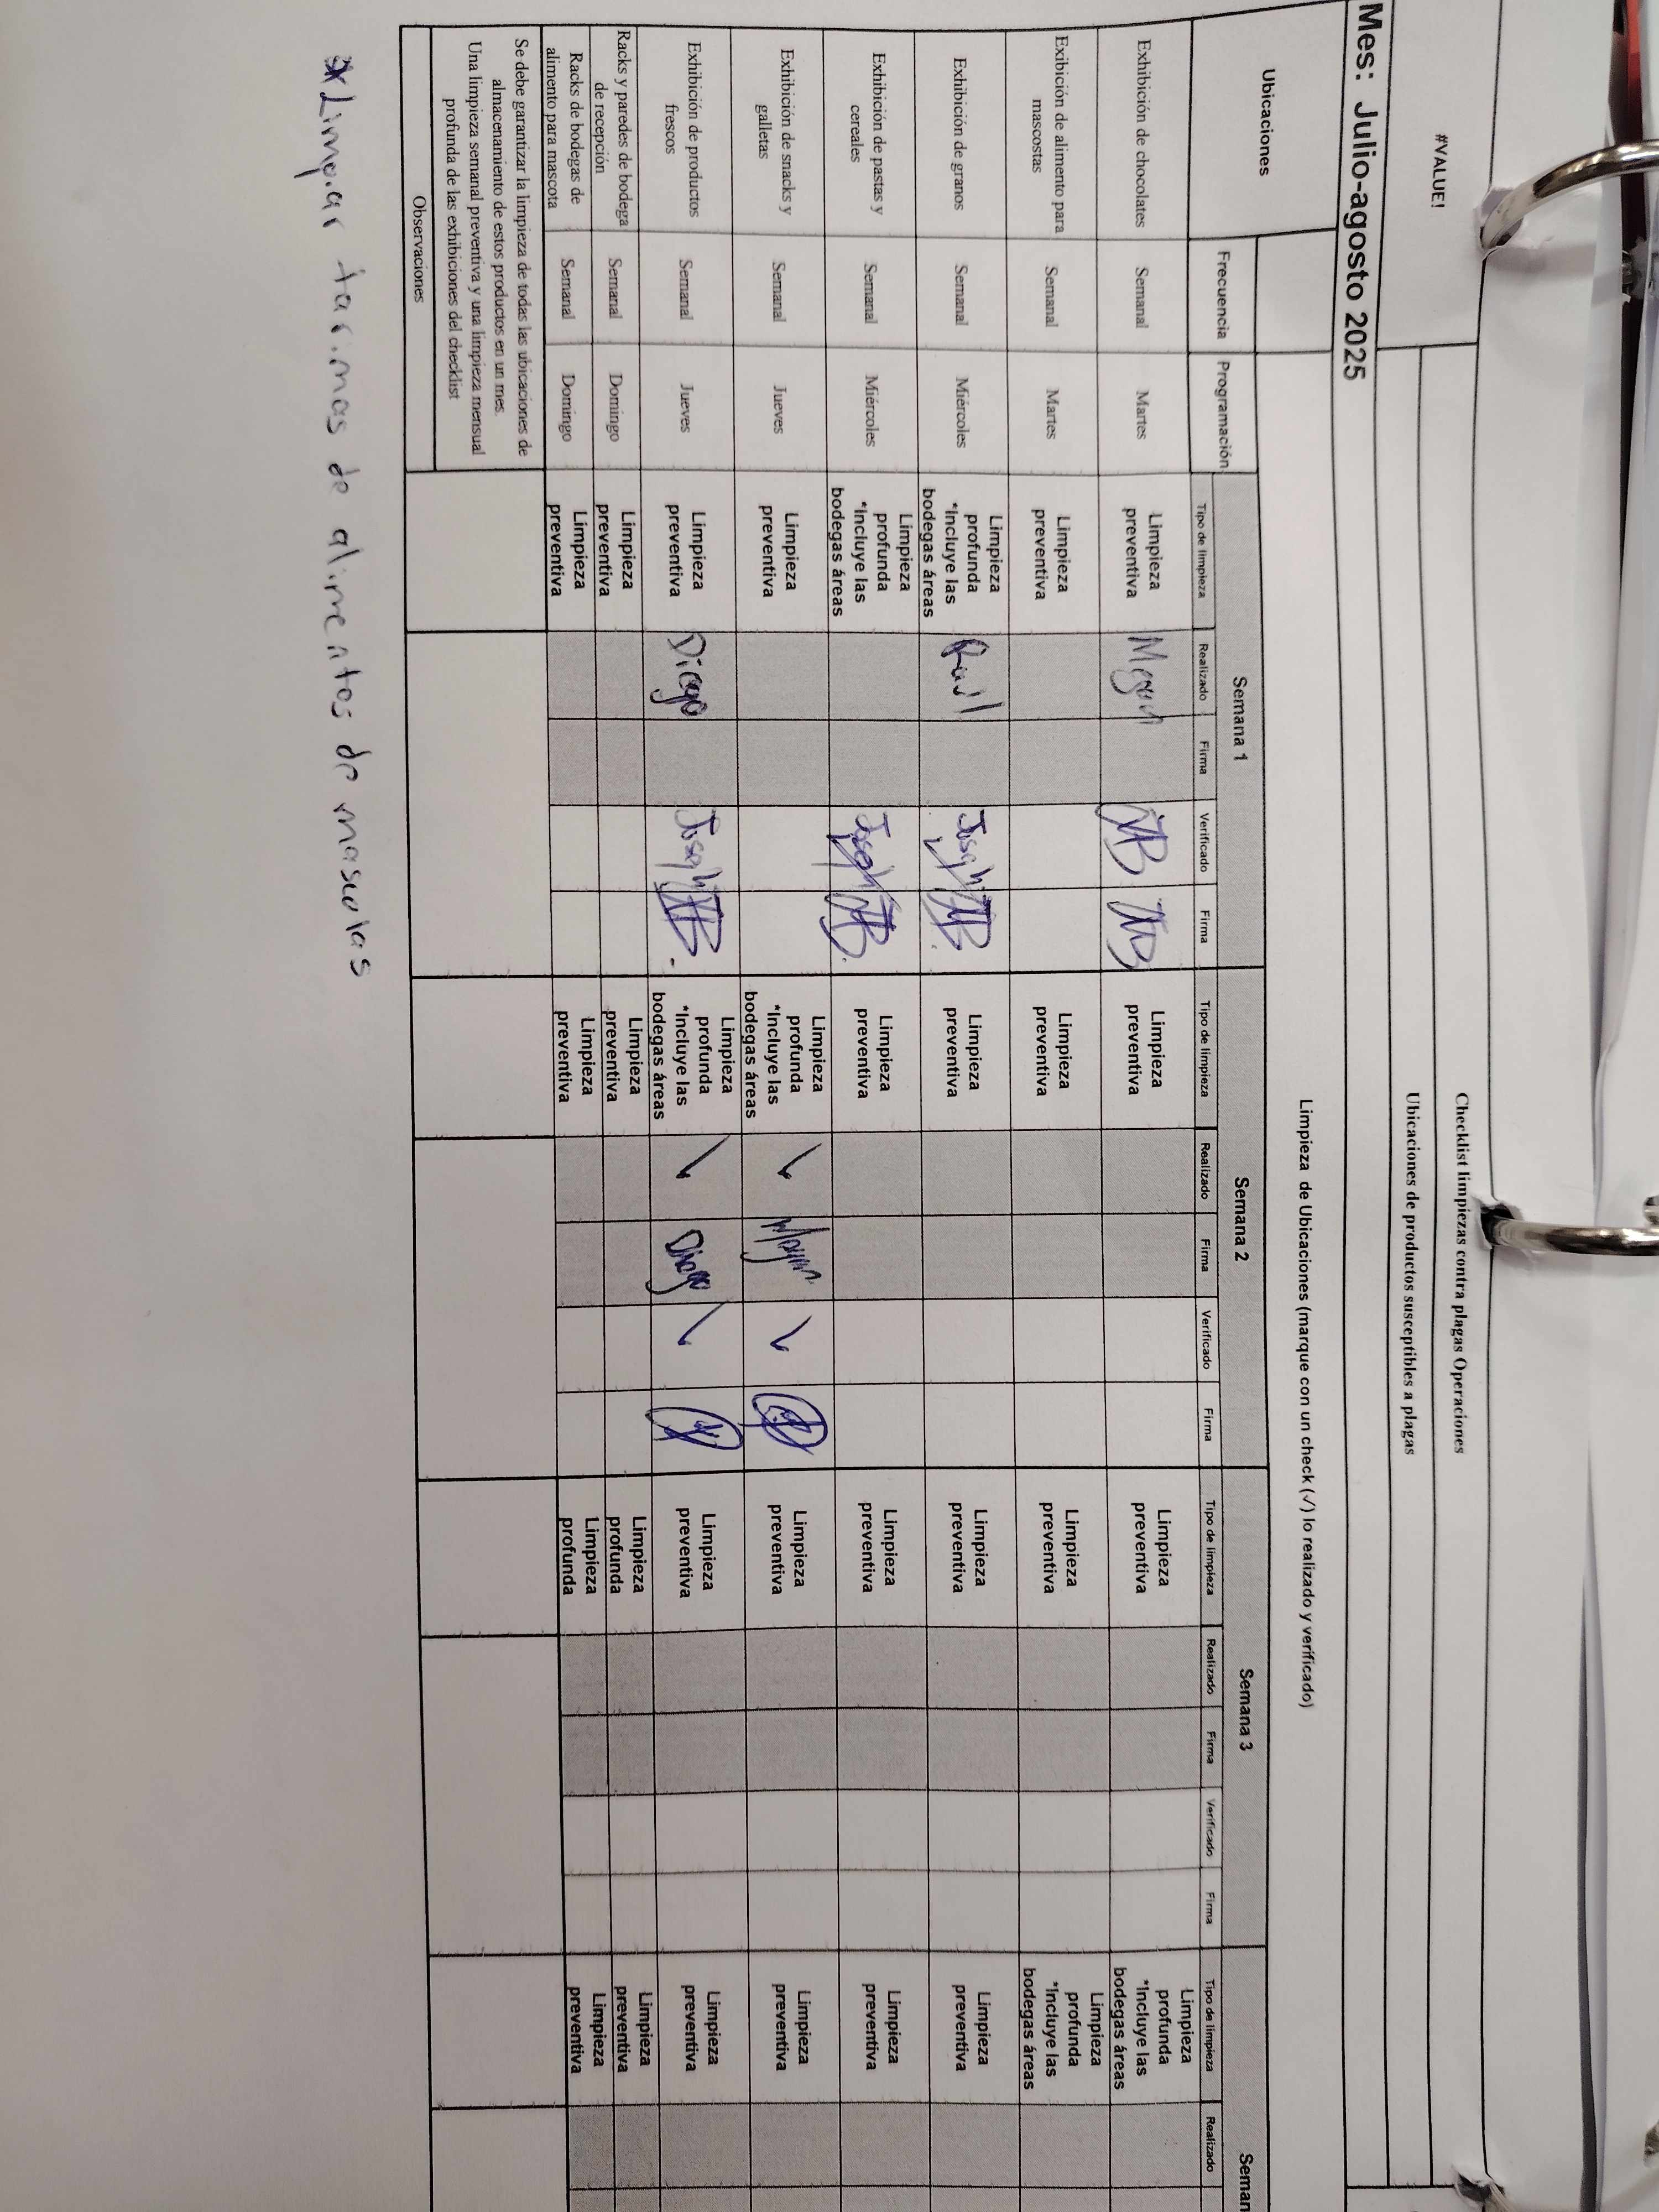 #VALUE!
Checklist limpiezas contra plagas Operaciones
Ubicaciones de productos susceptibles a plagas
Mes: Julio-agosto 2025
Limpieza de Ubicaciones (marque con un check (✓) lo realizado y verificado)
Ubicaciones Frecuencia Programación Semana 1 Semana 2 Semana 3 Seman
Tipo de limpieza Realizado Firma Verificado Firma Tipo de limpieza Realizado Firma Verificado Firma Tipo de limpieza Realizado Firma Verificado Firma Tipo de limpieza Realizado
Exhibición de chocolates Semanal Martes Limpieza preventiva Limpieza preventiva Limpieza preventiva Limpieza profunda *Incluye las bodegas áreas
Exibición de alimento para mascostas Semanal Martes Limpieza preventiva Limpieza preventiva Limpieza preventiva Limpieza profunda *Incluye las bodegas áreas
Exhibición de granos Semanal Miércoles Limpieza profunda *Incluye las bodegas áreas Raul Joseph Limpieza preventiva Limpieza preventiva Limpieza preventiva
Exhibición de pastas y cereales Semanal Miércoles Limpieza profunda *Incluye las bodegas áreas Joseph Limpieza preventiva Limpieza preventiva Limpieza preventiva
Exhibición de snacks y galletas Semanal Jueves Limpieza preventiva Limpieza profunda *Incluye las bodegas áreas ✓ ✓ Limpieza preventiva Limpieza preventiva
Exhibición de productos frescos Semanal Jueves Limpieza preventiva Diego Joseph Limpieza profunda *Incluye las bodegas áreas ✓ Diego ✓ Limpieza preventiva Limpieza preventiva
Racks y paredes de bodega de recepción Semanal Domingo Limpieza preventiva Limpieza preventiva Limpieza profunda Limpieza preventiva
Racks de bodegas de alimento para mascota Semanal Domingo Limpieza preventiva Limpieza preventiva Limpieza profunda Limpieza preventiva
Se debe garantizar la limpieza de todas las ubicaciones de
almacenamiento de estos productos en un mes.
Una limpieza semanal preventiva y una limpieza mensual
profunda de las exhibiciones del checklist
Observaciones
*Limpiar tarimas de alimentos de mascotas